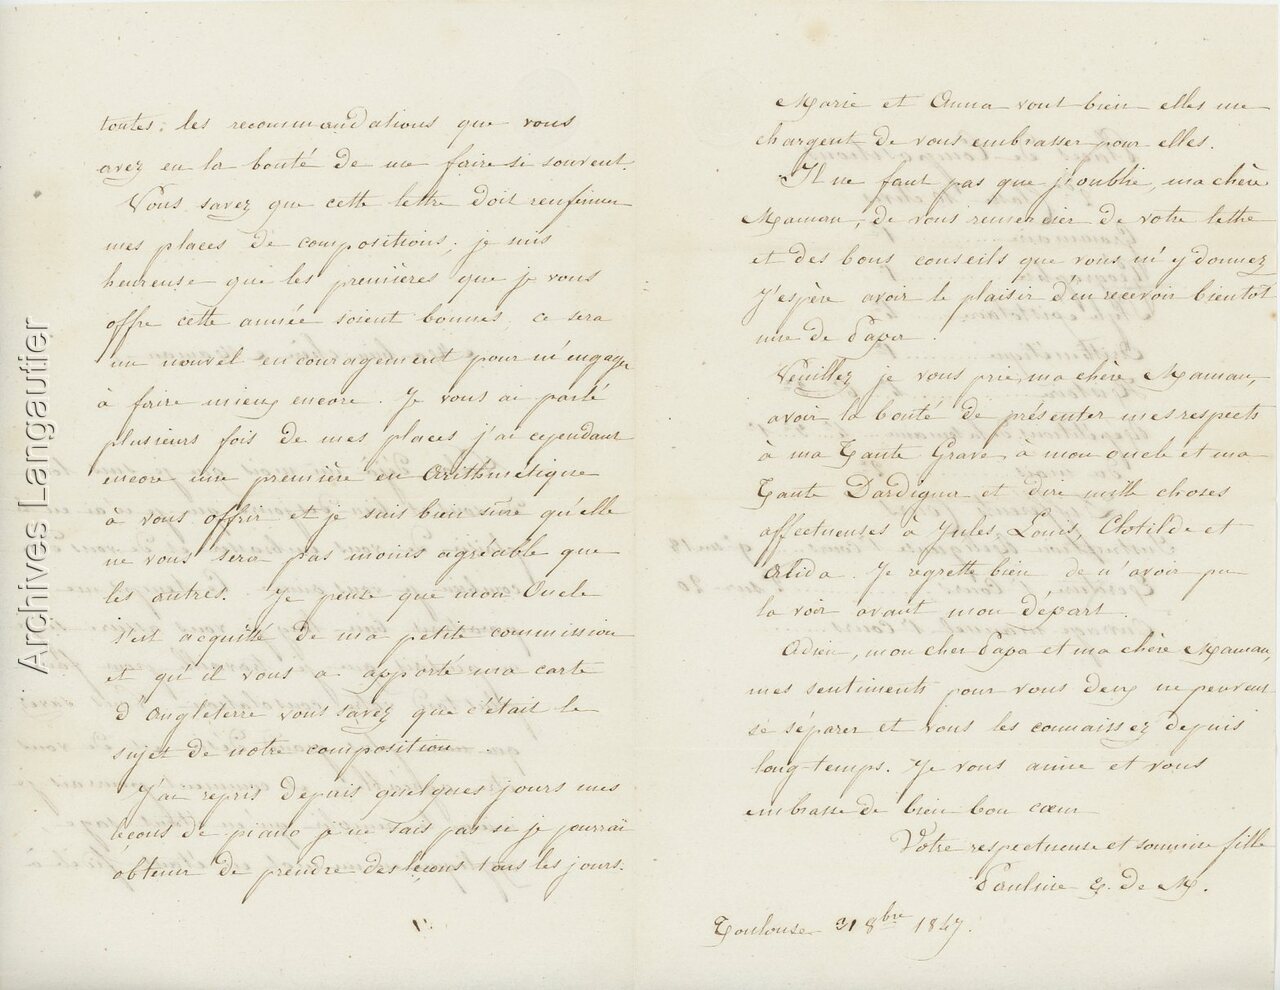 toutes, les recommandations que vous
avez eu la bonté de me faire si souvent.
Vous savez que cette lettre doit renfermer
mes places de compositions; je suis
heureuse que les premières que je vous
offre cette année soient bonnes, ce sera
un nouvel encouragement pour m'engager
à faire mieux encore. Je vous ai parlé
plusieurs fois de mes places j'ai cependant
encore une première en Arithmétique
à vous offrir et je suis bien sûre qu'elle
ne vous sera pas moins agréable que
les autres. Je pense que mon Oncle
s'est acquitté de ma petite commission
et qu'il vous a apporté ma carte
d'Angleterre vous savez que c'était le
sujet de notre composition.
J'ai repris depuis quelques jours mes
leçons de piano je ne sais pas si je pourrai
obtenir de prendre des leçons tous les jours.
Marie et Anna vont bien elles me
chargent de vous embrasser pour elles.
Il ne faut pas que j'oublie, ma chère
Maman, de vous remercier de votre lettre
et des bons conseils que vous m'y donnez
J'espère avoir le plaisir d'en recevoir bientôt
une de Papa.
Veuillez je vous prie, ma chère Maman,
avoir la bonté de présenter mes respects
à ma Tante Grave, à mon oncle et ma
Tante Dardignar et dire mille choses
affectueuses à Jules, Louis, Clotilde et
Alida. Je regrette bien de n'avoir pu
la voir avant mon départ.
Adieu, mon cher Papa et ma chère Maman,
mes sentiments pour vous deux ne peuvent
se séparer et vous les connaissez depuis
long-temps. Je vous aime et vous
embrasse de bien bon cœur
Votre respectueuse et soumise fille
Pauline E. de M.
Toulouse 31 8bre 1847.
Archives Langautier